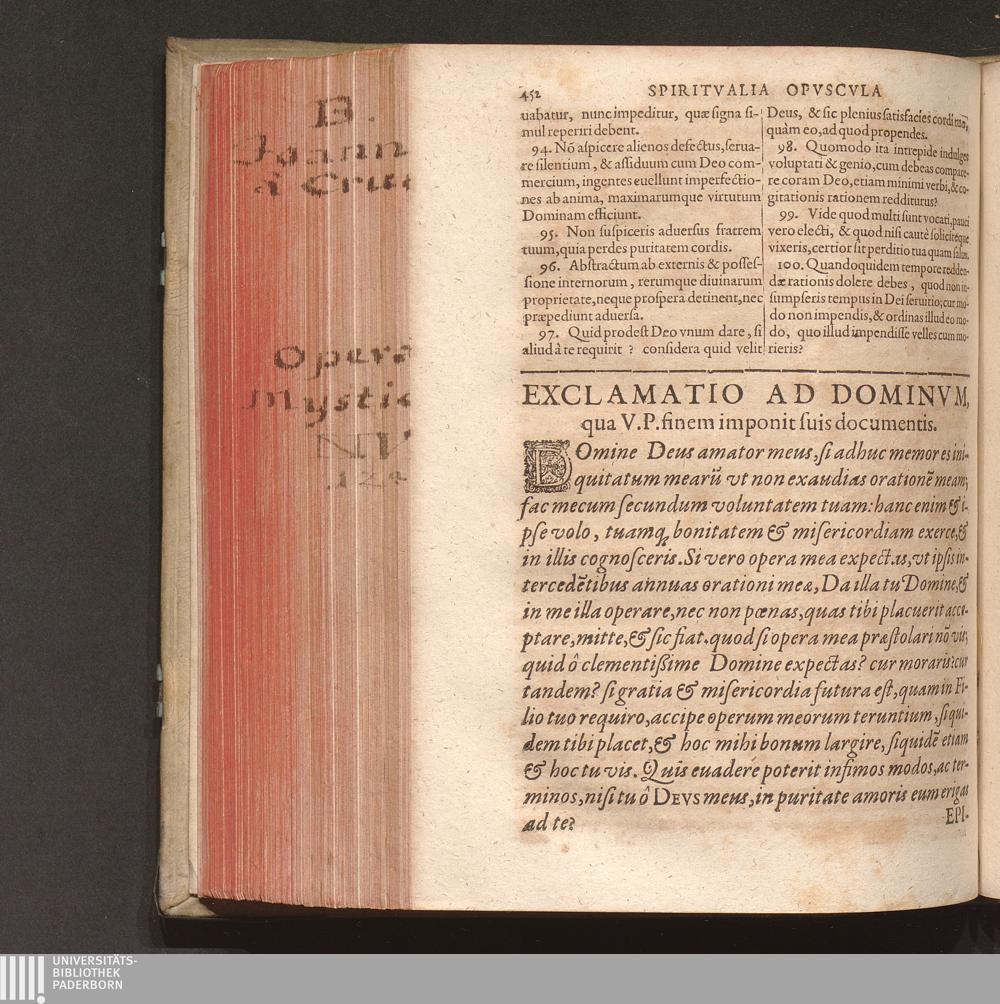 B.
Joann
à Cruc
Opera
Mystic
452 SPIRITVALIA OPVSCVLA
uabatur, nunc impeditur, quæ signa si-
mul reperiri debent.
94. Nō aspicere alienos defectus, serua-
re silentium, & assiduum cum Deo com-
mercium, ingentes euellunt imperfectio-
nes ab anima, maximarumque virtutum
Dominam efficiunt.
95. Non suspiceris aduersus fratrem
tuum, quia perdes puritatem cordis.
96. Abstractum ab externis & posses-
sione internorum, rerumque diuinarum
proprietate, neque prospera detinent, nec
præpediunt aduersa.
97. Quid prodest Deo vnum dare, si
aliud à te requirit ? considera quid velit
Deus, & sic plenius satisfacies cordi tuo,
quàm eo, ad quod propendes.
98. Quomodo ita intrepide indulges
voluptati & genio, cum debeas compare-
re coram Deo, etiam minimi verbi, & co-
gitationis rationem redditurus?
99. Vide quod multi sunt vocati, pauci
vero electi, & quod nisi cautè soliciteque
vixeris, certior sit perditio tua quam salus.
100. Quandoquidem tempore redden-
dæ rationis dolere debes, quod non in-
sumpseris tempus in Dei seruitio; cur mo-
do non impendis, & ordinas illud eo mo-
do, quo illud impendisse velles cum mo-
rieris?
EXCLAMATIO AD DOMINVM,
qua V. P. finem imponit suis documentis.
DOmine Deus amator meus, si adhuc memor es ini-
quitatum mearū vt non exaudias orationē meam;
fac mecum secundum voluntatem tuam: hanc enim & i-
pse volo, tuamq; bonitatem & misericordiam exerce, &
in illis cognosceris. Si vero opera mea expectas, vt ipsis in-
tercedētibus annuas orationi meæ, Da illa tu Domine, &
in me illa operare, nec non pœnas, quas tibi placuerit acce-
ptare, mitte, & sic fiat. quod si opera mea præstolari nō vis;
quid ô clementissime Domine expectas? cur moraris? cur
tandem? si gratia & misericordia futura est, quam in Fi-
lio tuo requiro, accipe operum meorum teruntium, si qui-
dem tibi placet, & hoc mihi bonum largire, siquidē etiam
& hoc tu vis. Quis euadere poterit infimos modos, ac ter-
minos, nisi tu ô DEVS meus, in puritate amoris eum erigas
ad te?
EPI-
UNIVERSITÄTS-
BIBLIOTHEK
PADERBORN